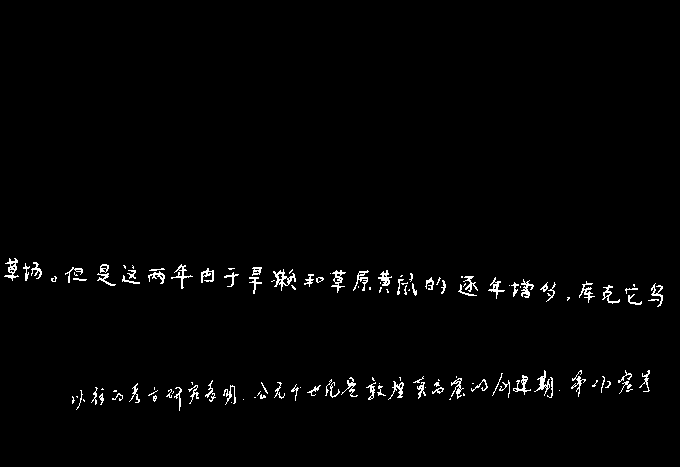 草场。但是这两年由于旱獭和草原黄鼠的逐年增多，库克它乌
以往的考古研究表明，公元十世纪是敦煌莫高窟的创建期，第275窟等